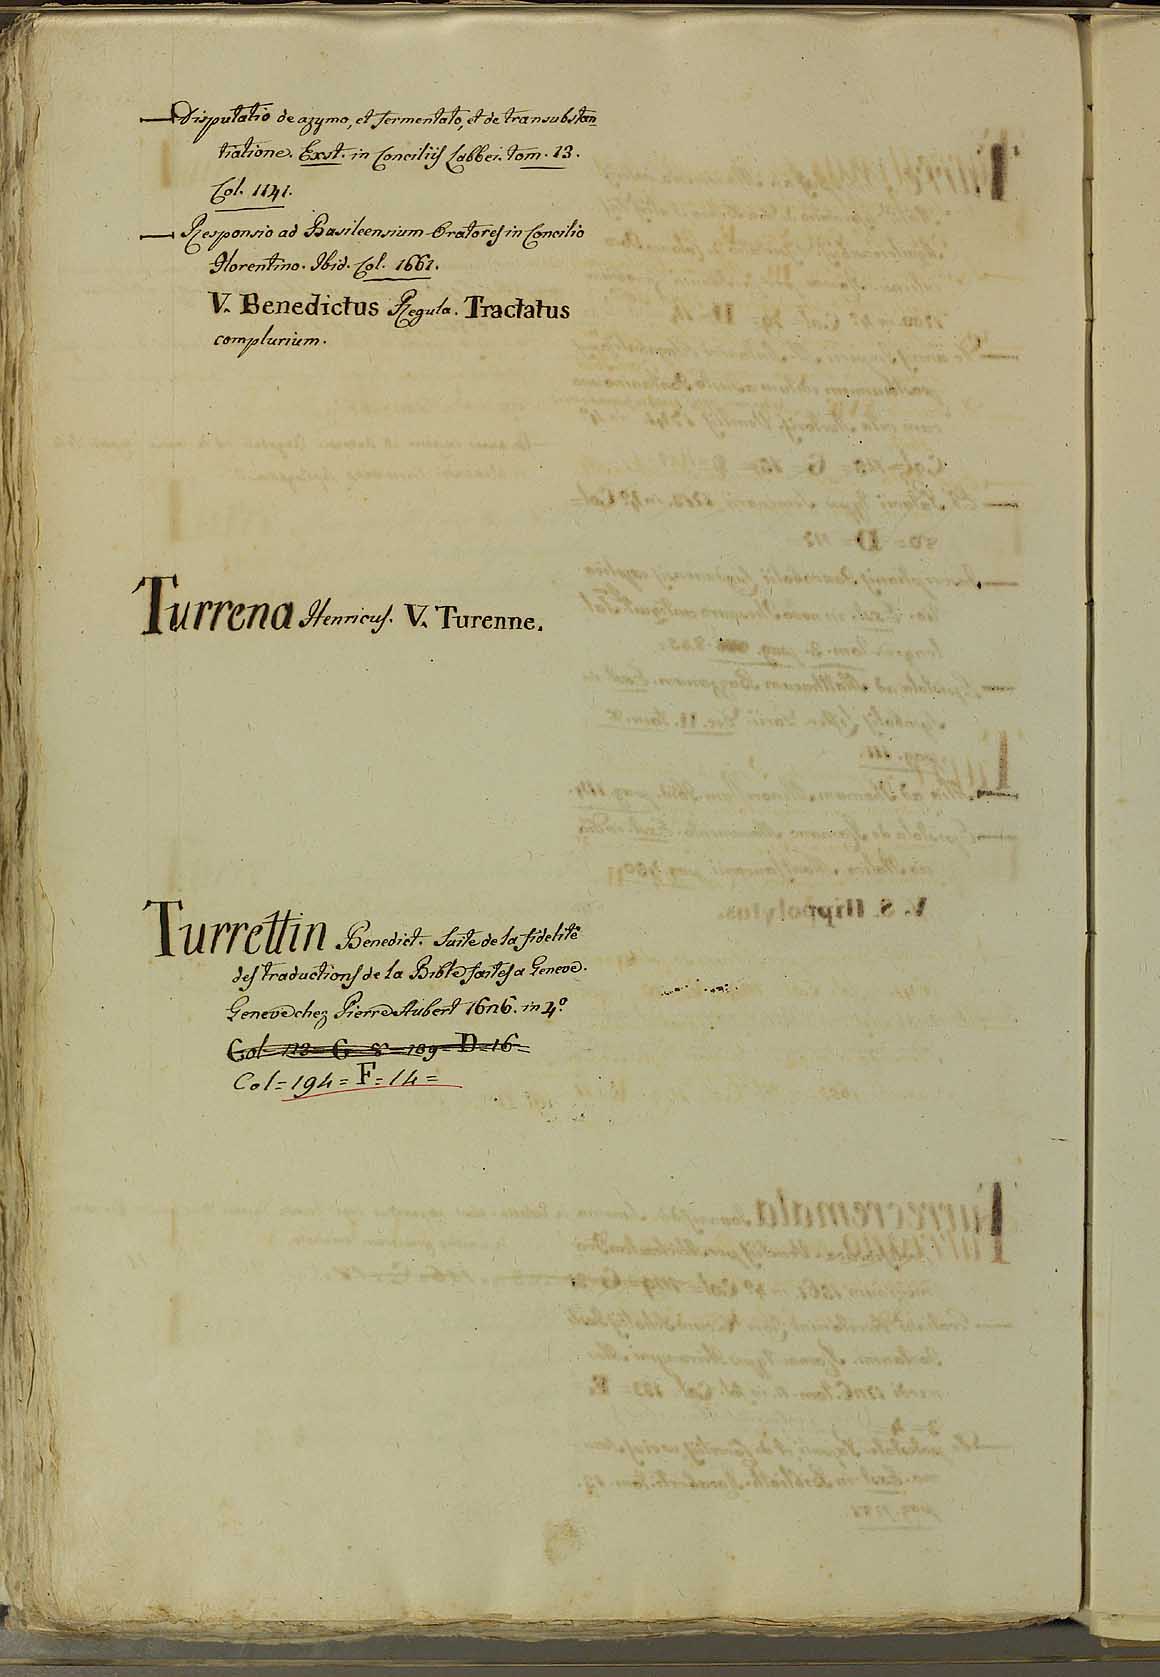 — Disputatio de azymo, et fermentato, et de transubstan=
tiatione. Exst. in Conciliis Labbei. tom. 13.
Col. 1141.
— Responsio ad Basileensium Oratores in Concilio
Florentino. Ibid. Col. 1661.
V. Benedictus Regula. Tractatus
complurium.
Turrena Henricus. V. Turenne.
Turrettin Benedict. Suite de la fidelité
des traductions de la Bible faites a Geneve.
Geneve chez Pierre Aubert 1626. in 4.º
Col= 194= F= 14=